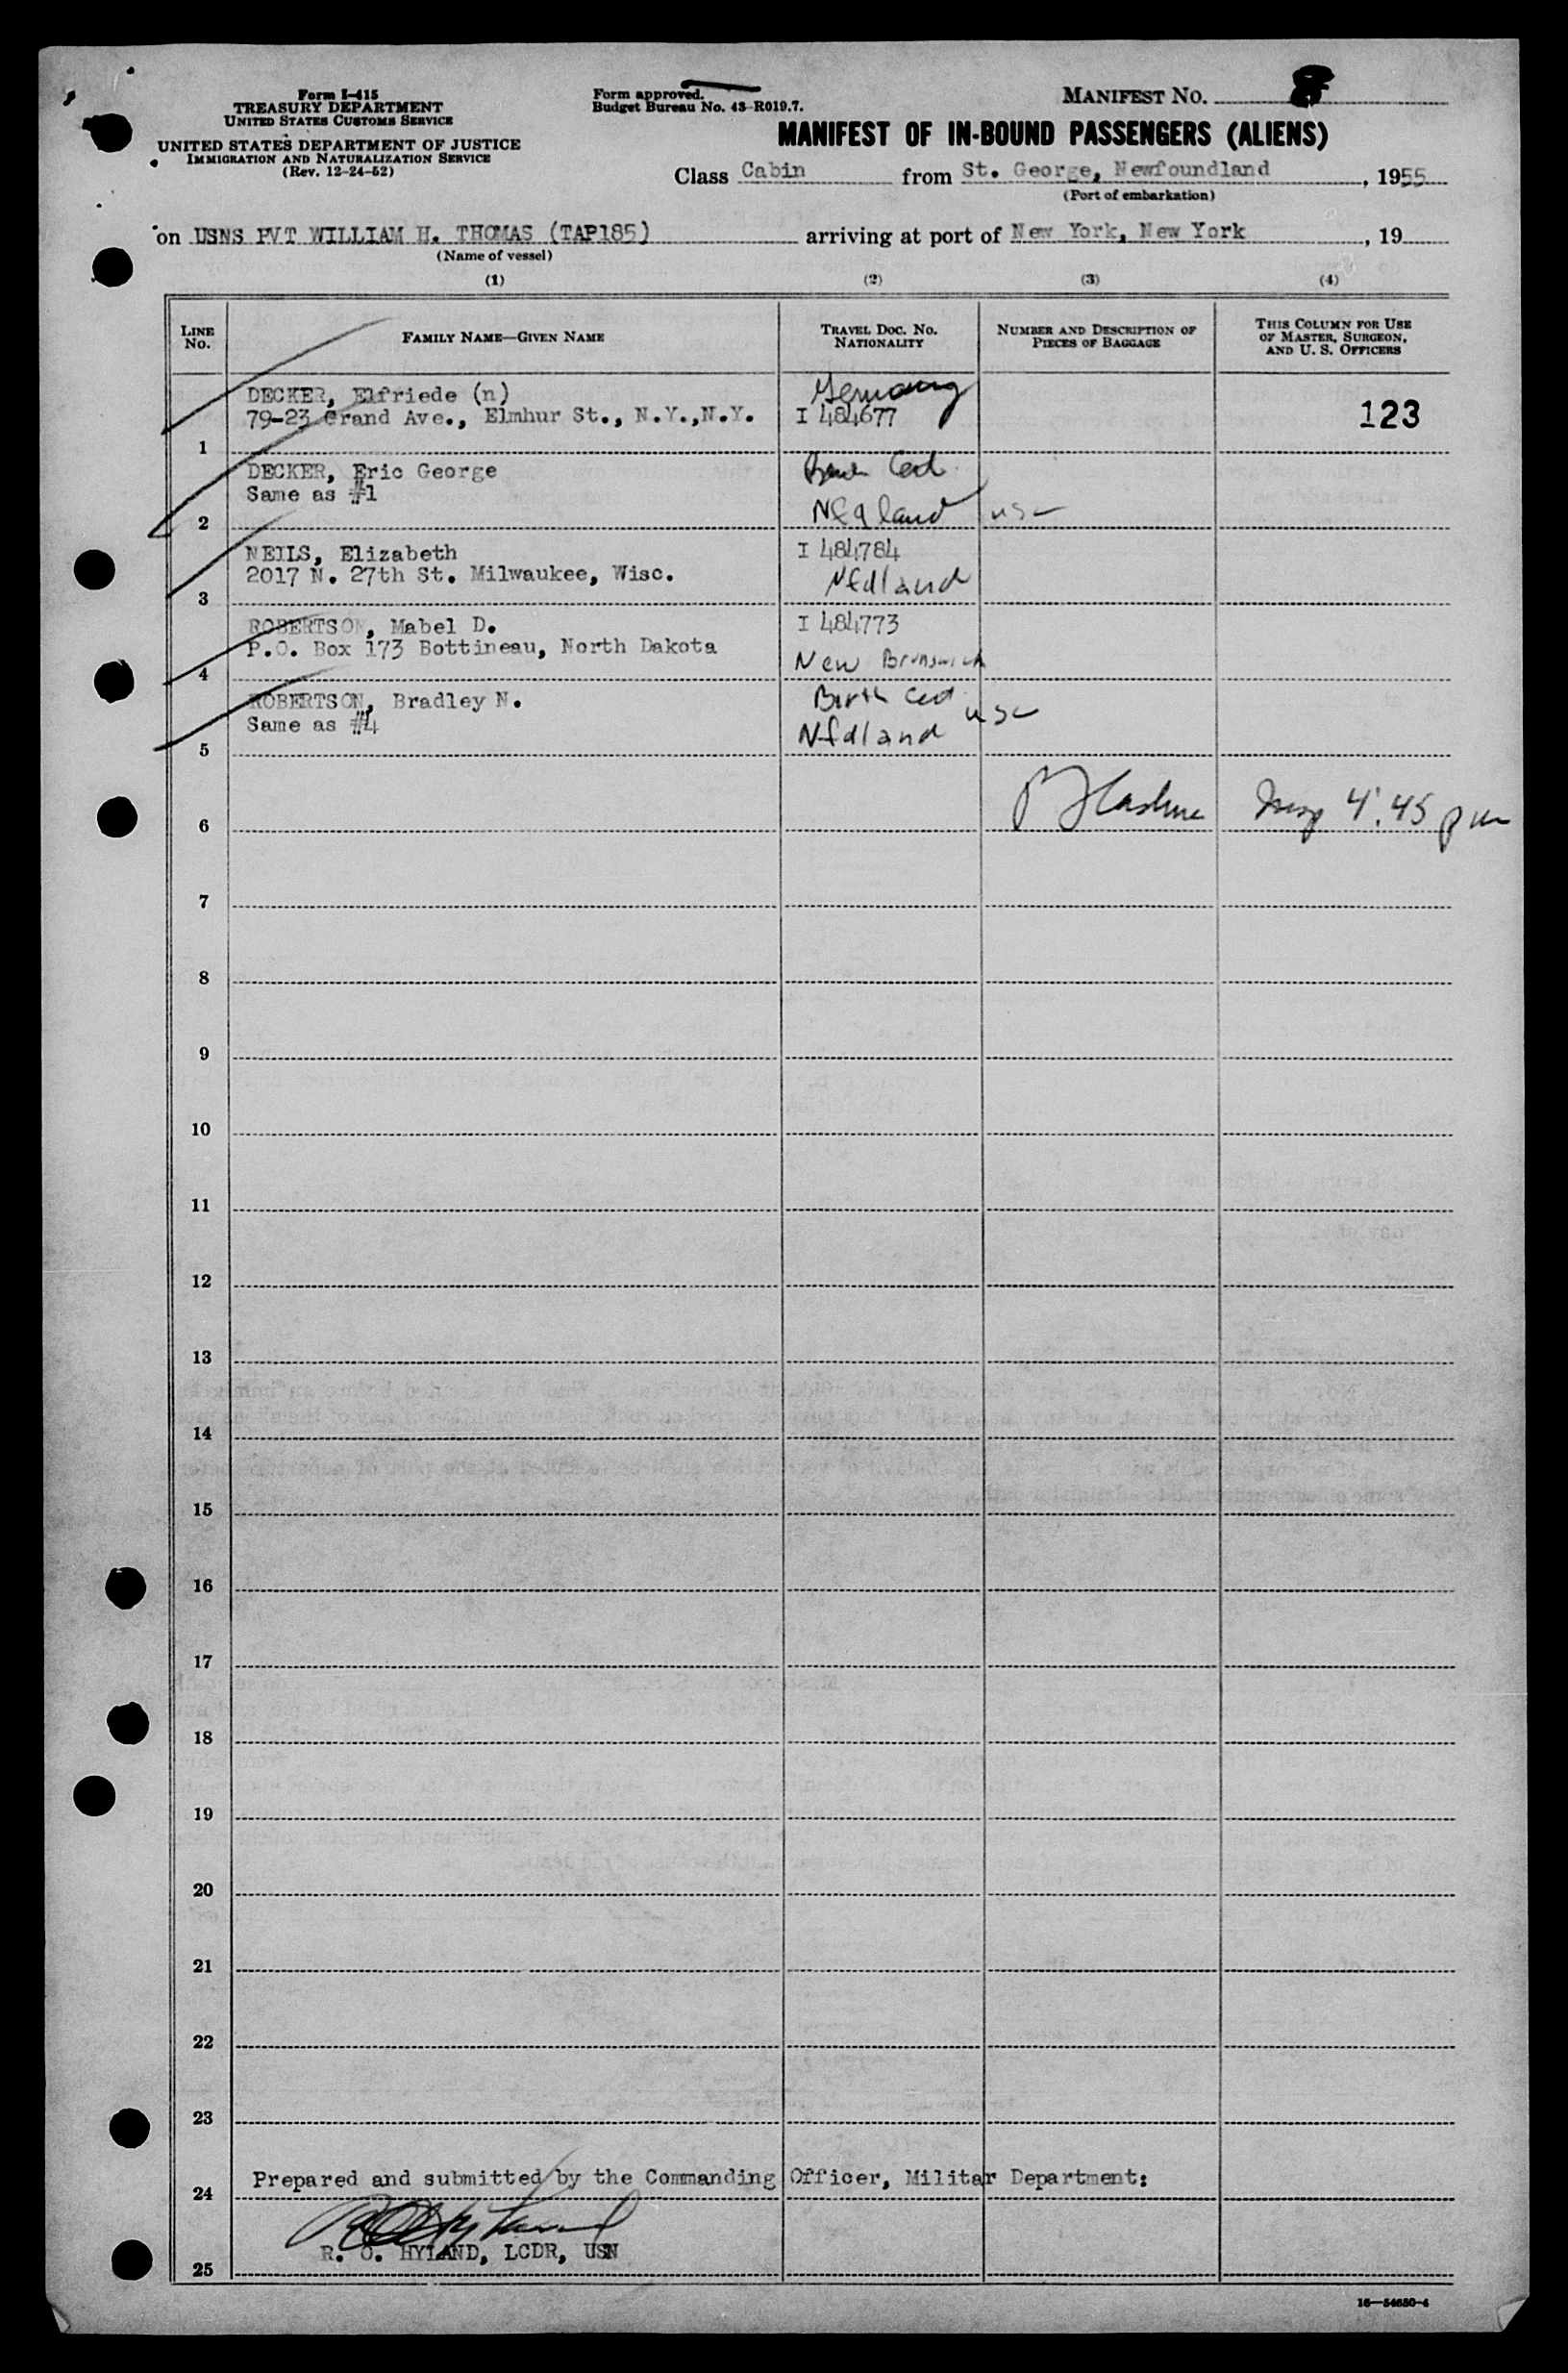 Form I-415
TREASURY DEPARTMENT
UNITED STATES CUSTOMS SERVICE
UNITED STATES DEPARTMENT OF JUSTICE
IMMIGRATION AND NATURALIZATION SERVICE
(Rev. 12-24-52)
Form approved.
Budget Bureau No. 43-R019.7.
MANIFEST NO. 8
MANIFEST OF IN-BOUND PASSENGERS (ALIENS)
Class Cabin from St. George, Newfoundland, 1955
(Port of embarkation)
on USNS PVT WILLIAM H. THOMAS (TAP185) arriving at port of New York, New York, 19
(Name of vessel)
(1) (2) (3) (4)
LINE No.
FAMILY NAME—GIVEN NAME
TRAVEL DOC. NO. NATIONALITY
NUMBER AND DESCRIPTION OF PIECES OF BAGGAGE
THIS COLUMN FOR USE OF MASTER, SURGEON, AND U. S. OFFICERS
DECKER, Elfriede (n) Germany
79-23 Grand Ave., Elmhur St., N.Y.,N.Y. I 484677 123
1
DECKER, Eric George Cert.
Same as #1
2 usc
NEILS, Elizabeth I 484784
2017 N. 27th St. Milwaukee, Wisc. Nfdland
3
ROBERTSON, Mabel D. I 484773
P.O. Box 173 Bottineau, North Dakota New Brunswick
4
ROBERTSON, Bradley N. Birth Cert. usc
Same as #4 Nfdland
5
6 4:45 pm
7
8
9
10
11
12
13
14
15
16
17
18
19
20
21
22
23
Prepared and submitted by the Commanding Officer, Militar Department:
24
R. O. HYLAND, LCDR, USN
25
16—54650-4